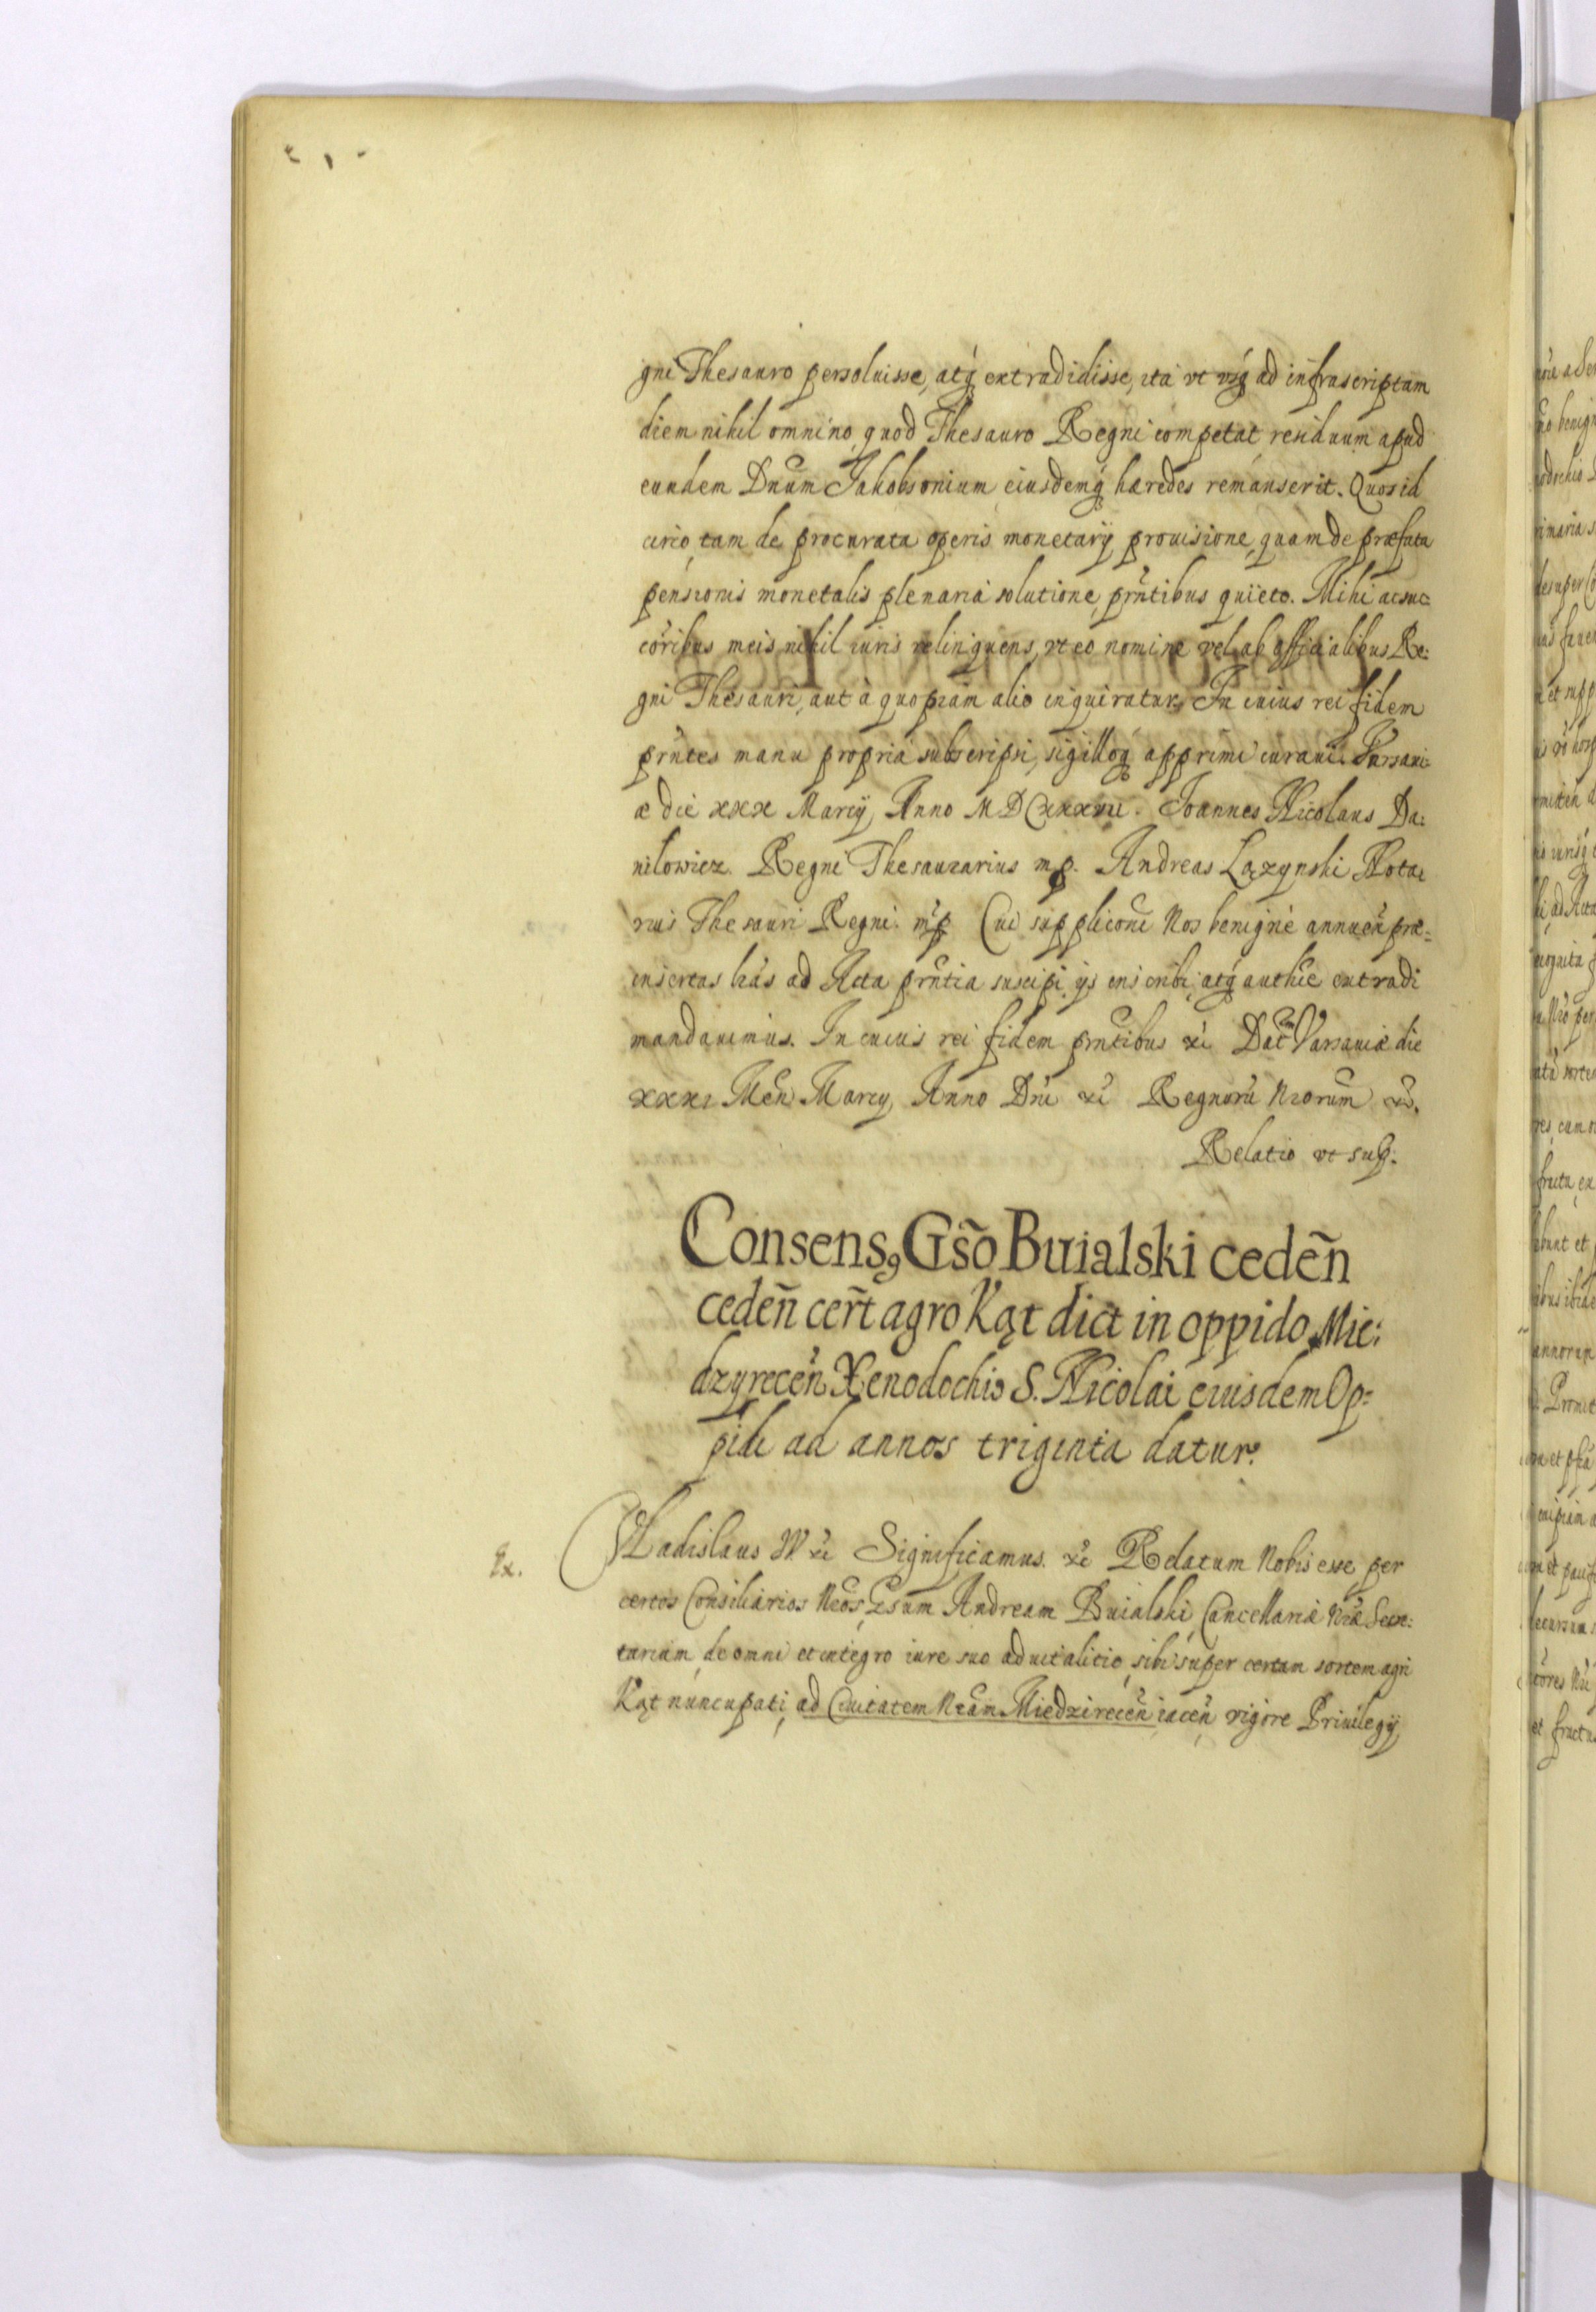 gni Thesauro persoluisse, atq́ extradidisse, ita vt vsq́ ad infrascriptam
diem nihil omnino, quod Thesauro Regni competat, residuum apud
eundem Dnũm Jakobsonium eiusdemq́ hæredes remanserit. Quos id
circo, tam de procurata operis monetarÿ prouisione, quam de præfata
pensionis monetalis plenaria solutione, prñtibus quieto. Mihi ac suc=
cõribus meis nihil iuris relinquens, vt eo nomine vel ab officialibus Re:
gni Thesauri, aut à quopiam alio inquiratur. In cuius rei fidem
prñtes manu propria subscripsi, sigilloq́ apprimi curaui. Varsaui=
æ die xxx Marcÿ, Anno MDCxxxvii. Joannes Nicolaus Da:
nilowicz. Regni Thesaurarius mp. Andreas Łązynski Nota:
rius Thesauri Regni. mp Cui supplicõni Nos benigne annueñ præ=
insertas lrãs ad Acta prñtia suscipi ijs inscribi, atq́ authẽe extradi
mandauimus. In cuius rei fidem prñtibus &c̃ Dat̃m Varsauiæ die
xxxi Meñ Marcy, Anno Dñi &c̃ Regnorũ Nrorũm &c̃.
Relatio vt sup:
Consensꝰ Gsõ Buialski cedeñ
cedeñ cert̃ agro Kąt dict in oppido Mie:
dzyreceñ Xenodochio S. Nicolai eiusdem Op=
pidi ad annos triginta datur.
Ex.
Vladislaus IV &c̃ Significamus. &c̃ Relatum Nobis esse, per
certos Consiliarios Nrõs, Gsum Andream Buialski, Cancellariæ Nræ Secre:
tarium, de omni et integro iure suo aduitalitio, sibi super certam sortem agri
Kąt nuncupati, ad Ciuitatem Nrãm Miedzireceñ iaceñ vigore Priuilegÿ